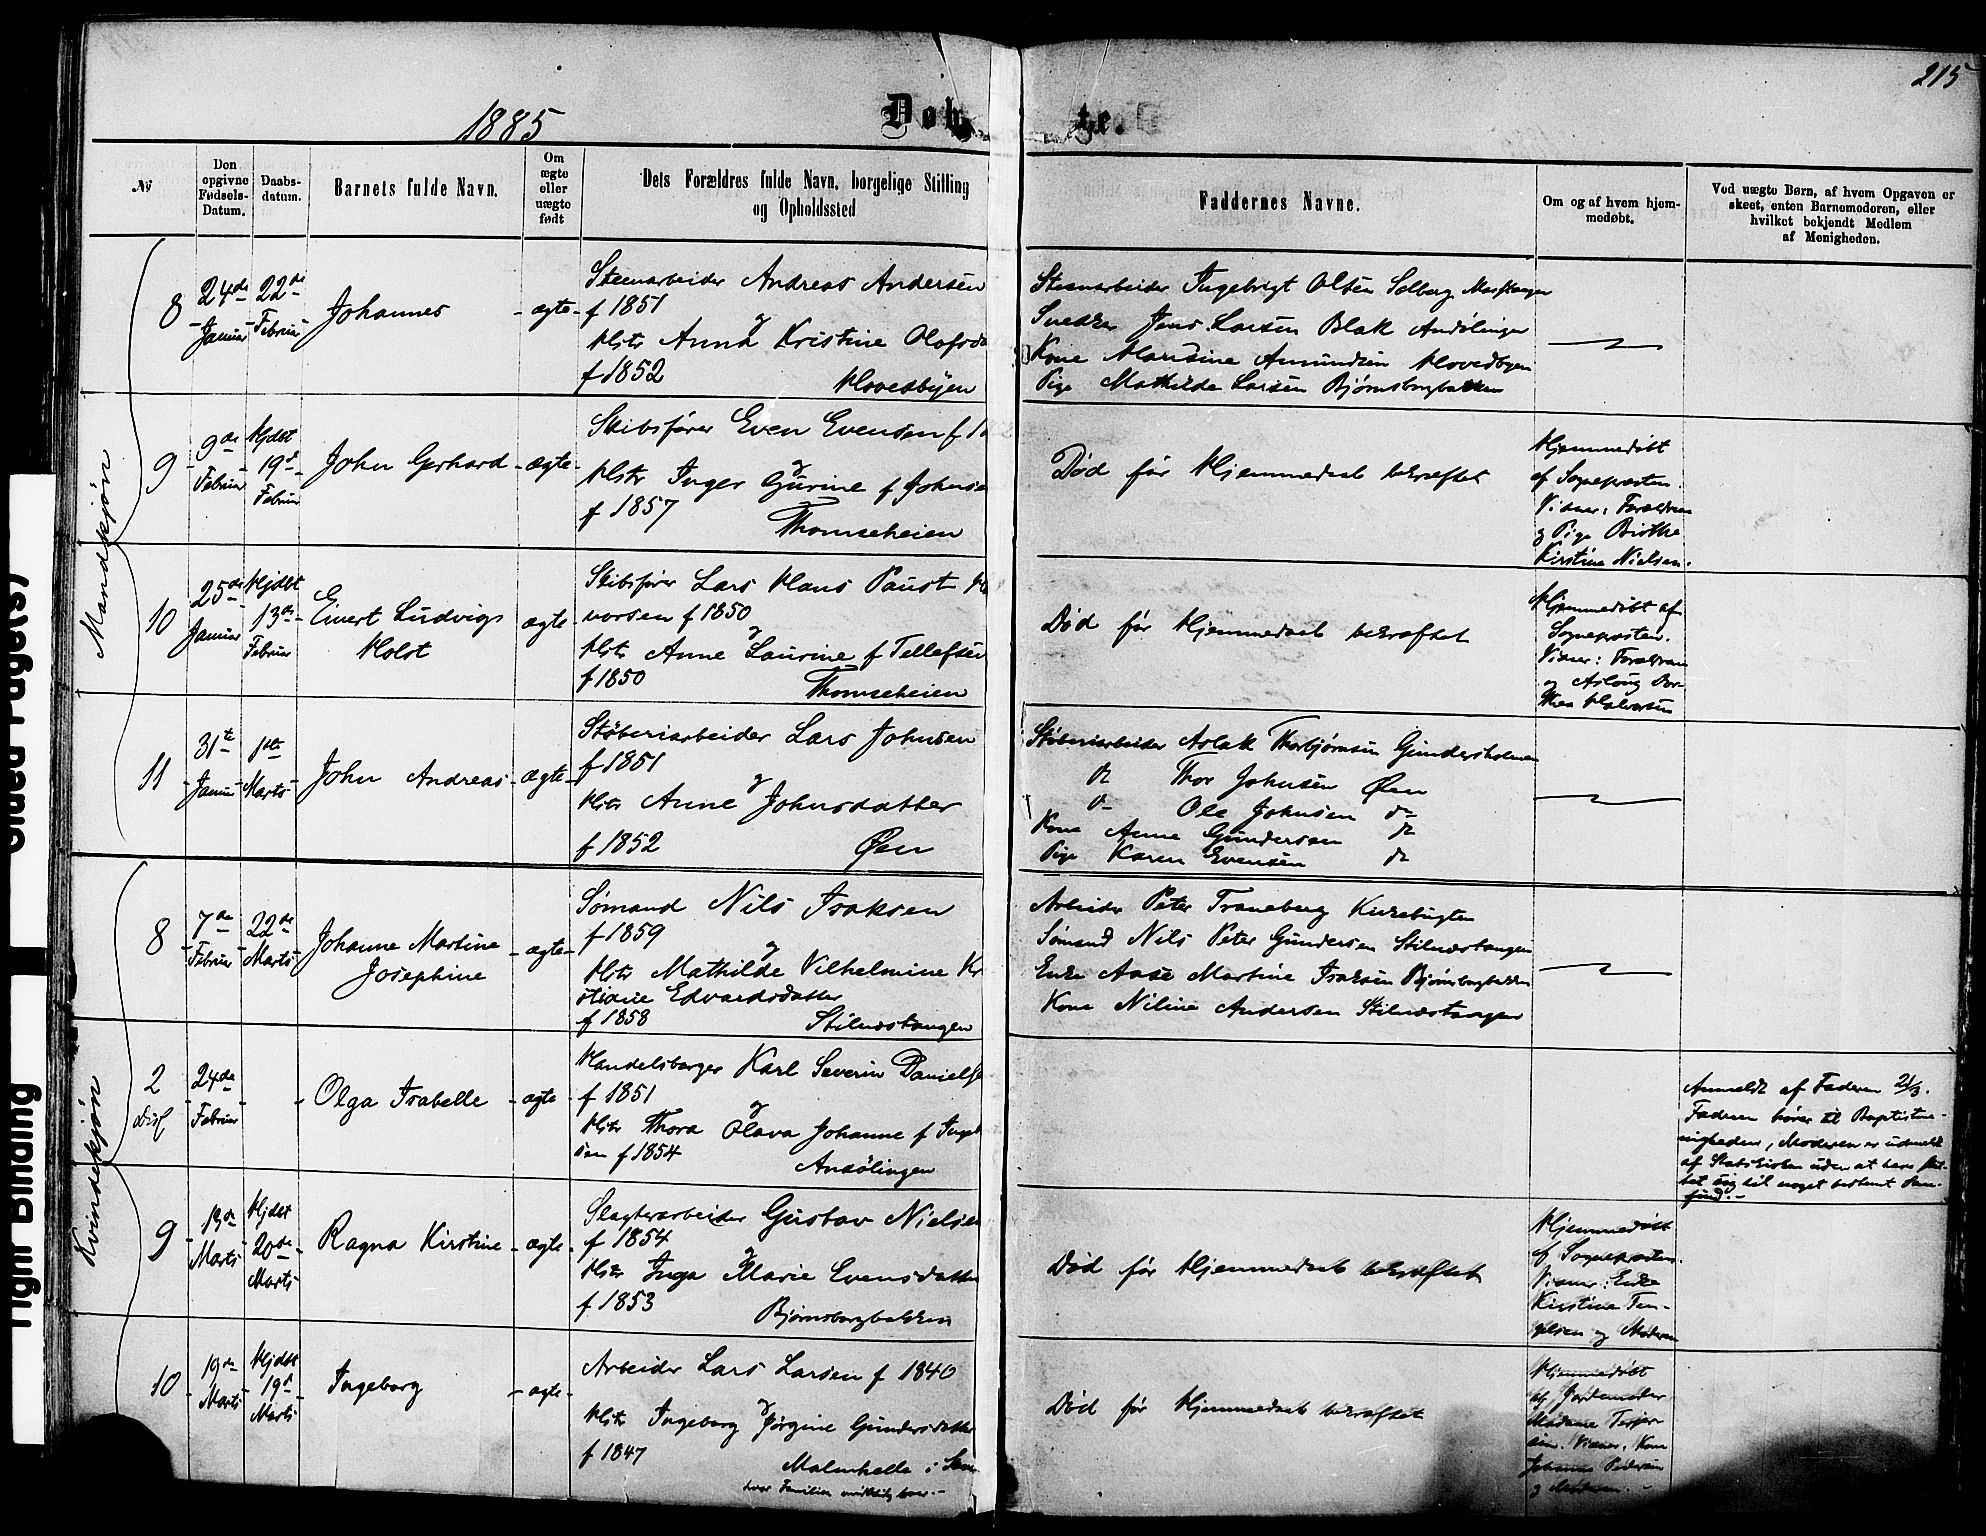 215
1885
Døb
te.
№
Den opgivne Fødsels-Datum.
Daabs-datum.
Barnets fulde Navn.
Om ægte eller uægte født
Dets Forældres fulde Navn, borgelige Stilling og Opholdssted
Faddernes Navne.
Om og af hvem hjem-medøbt.
Ved uægte Børn, af hvem Opgaven er skeet, enten Barnemoderen, eller hvilket bekjendt Medlem af Menigheden.
Mandkjøn
8
24de Januar
22de Februar
Johannes
ægte
Steenarbeider Andreas Andersen
f 1851
og
Hstr Anna Kristine Olofsd
f 1852 Hovedbyen
Steenarbeider Ingebrigt Olsen Solberg
Snedker Jens Larsen Blak Andølingen
Kone Mansine Amundsen Hovedbyen
Pige Mathilde Larsen Bjørnsborgbakken
9
9de Februar
Hjdbt 19d Februar
John Gerhard
ægte
Skibsfører Even Evensen f 1
og
Hstr Inger Gurine f Johnse
f 1857
Thomseheien
Død før Hjemmedaab bekræftet
Hjemmedøbt
af Sognepresten.
Vidner: Forældrene
og Pige Birthe
Kirstine Nielsen.
10
25de Januar
Hjdbt 13de Februar
Einert Ludvigs
Holst
ægte
Skibsfører Lars Hans Paust H
vorsen f 1850
og
Hstr Anne Laurine f Tellefsen
f 1850
Thomseheien
Død før Hjemmedaab bekræftet
Hjemmedøbt af
Sognepresten.
Vidner: Forældrene
og Aslaug Dor-
thea Halvorsen
11
31te Januar
1ste Marts
John Andreas
ægte
Støberiarbeider Lars Johnsen
f 1851
og
Hstr Anne Johnsdatter
f 1852 Øen
Støberiarbeider Aslak Thorbjørnsen Gundersholmen
do Thor Johnsen Øen
do Ole Johnsen do
Kone Anne Gundersen do
Pige Karen Evensen do
Kvindekjøn
8
7de Februar
22de Marts
Johanne Martine
Josephine
ægte
Sømand Nils Isaksen
f 1859
og
Hstr Mathilde Vilhelmine Kr
stiane Edvardsdatter
f 1858 Stilnæstangen
Arbeider Peter Traneberg Kirkebugten
Sømand Nils Peter Gundersen Stilnæstangen
Enke Aase Martine Isaksen Bjørnsborgbakken
Kone Niline Andersen Stilnæstangen
2
Diss
24de Februar
Olga Isabelle
ægte
Handelsborger Karl Severin Danielse
f 1851
og
Hstr Thora Olava Johanne f Inge
sen f 1854
Andølingen
Anmeldt af Faderen 2/3.
Faderen hører til Baptistme-
nigheden, Moderen er udmeldt
af Statskirken uden at have slut-
tet sig til noget bestemt Sam-
fund.-
9
Marts
Hjdbt 20de Marts
Ragna Kirstine
ægte
Slagterarbeider Gustav Nielsen
f 1854
og
Hstr Inga Marie Evensdatter
f 1853
Bjørnsborgbakken
Død før Hjemmedaab bekræftet
Hjemmedøbt
af Sognepresten.
Vidner: Enke
Kirstine
og Moderen
10
19de Marts
Hjdbt 19d Marts
Ingeborg
ægte
Arbeider Lars Larsen f 1840
og
Hstr Ingeborg Jørgine Gundersdatter
f 1847
Malmhelle i
hvor Familien
Død før Hjemmedaab bekræftet
Hjemmedøbt
af Jordemoder
Madame Terjer-
sen. Vidner: Kone
Johanne Pedersen
og Moderen.